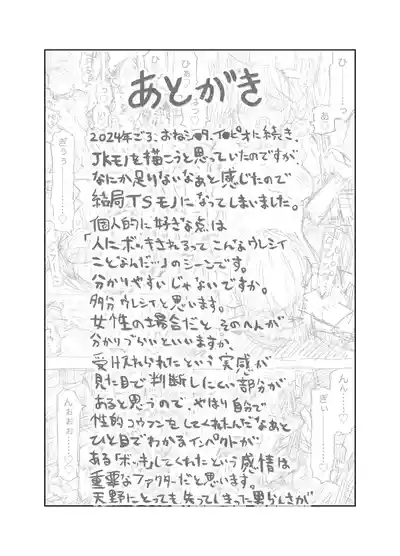 あとがき
2024年ごろ、おねシ●9、T●ピオに続き、
JKモノを描こうと思っていたのですが、
なにか足りないなあと感じたので
結局TSモノになってしまいました。
個人的に好きな点は
「人にボッキされるって こんなウレシイ
ことなんだ…」のシーンです。
分かりやすいじゃないですか。
多分ウレシイと思います。
女性の場合だと そのへんが
分かりづらいといいますか、
受け入れられたという実感が
見た目で判断しにくい部分が
あると思うので、やはり自分で
性的コウフンをしてくれたんだなあと
ひと目でわかるインパクトが
ある「ボッキ」してくれたという感情は
重要なファクターだと思います。
天野にとっても 失ってしまった男らしさが